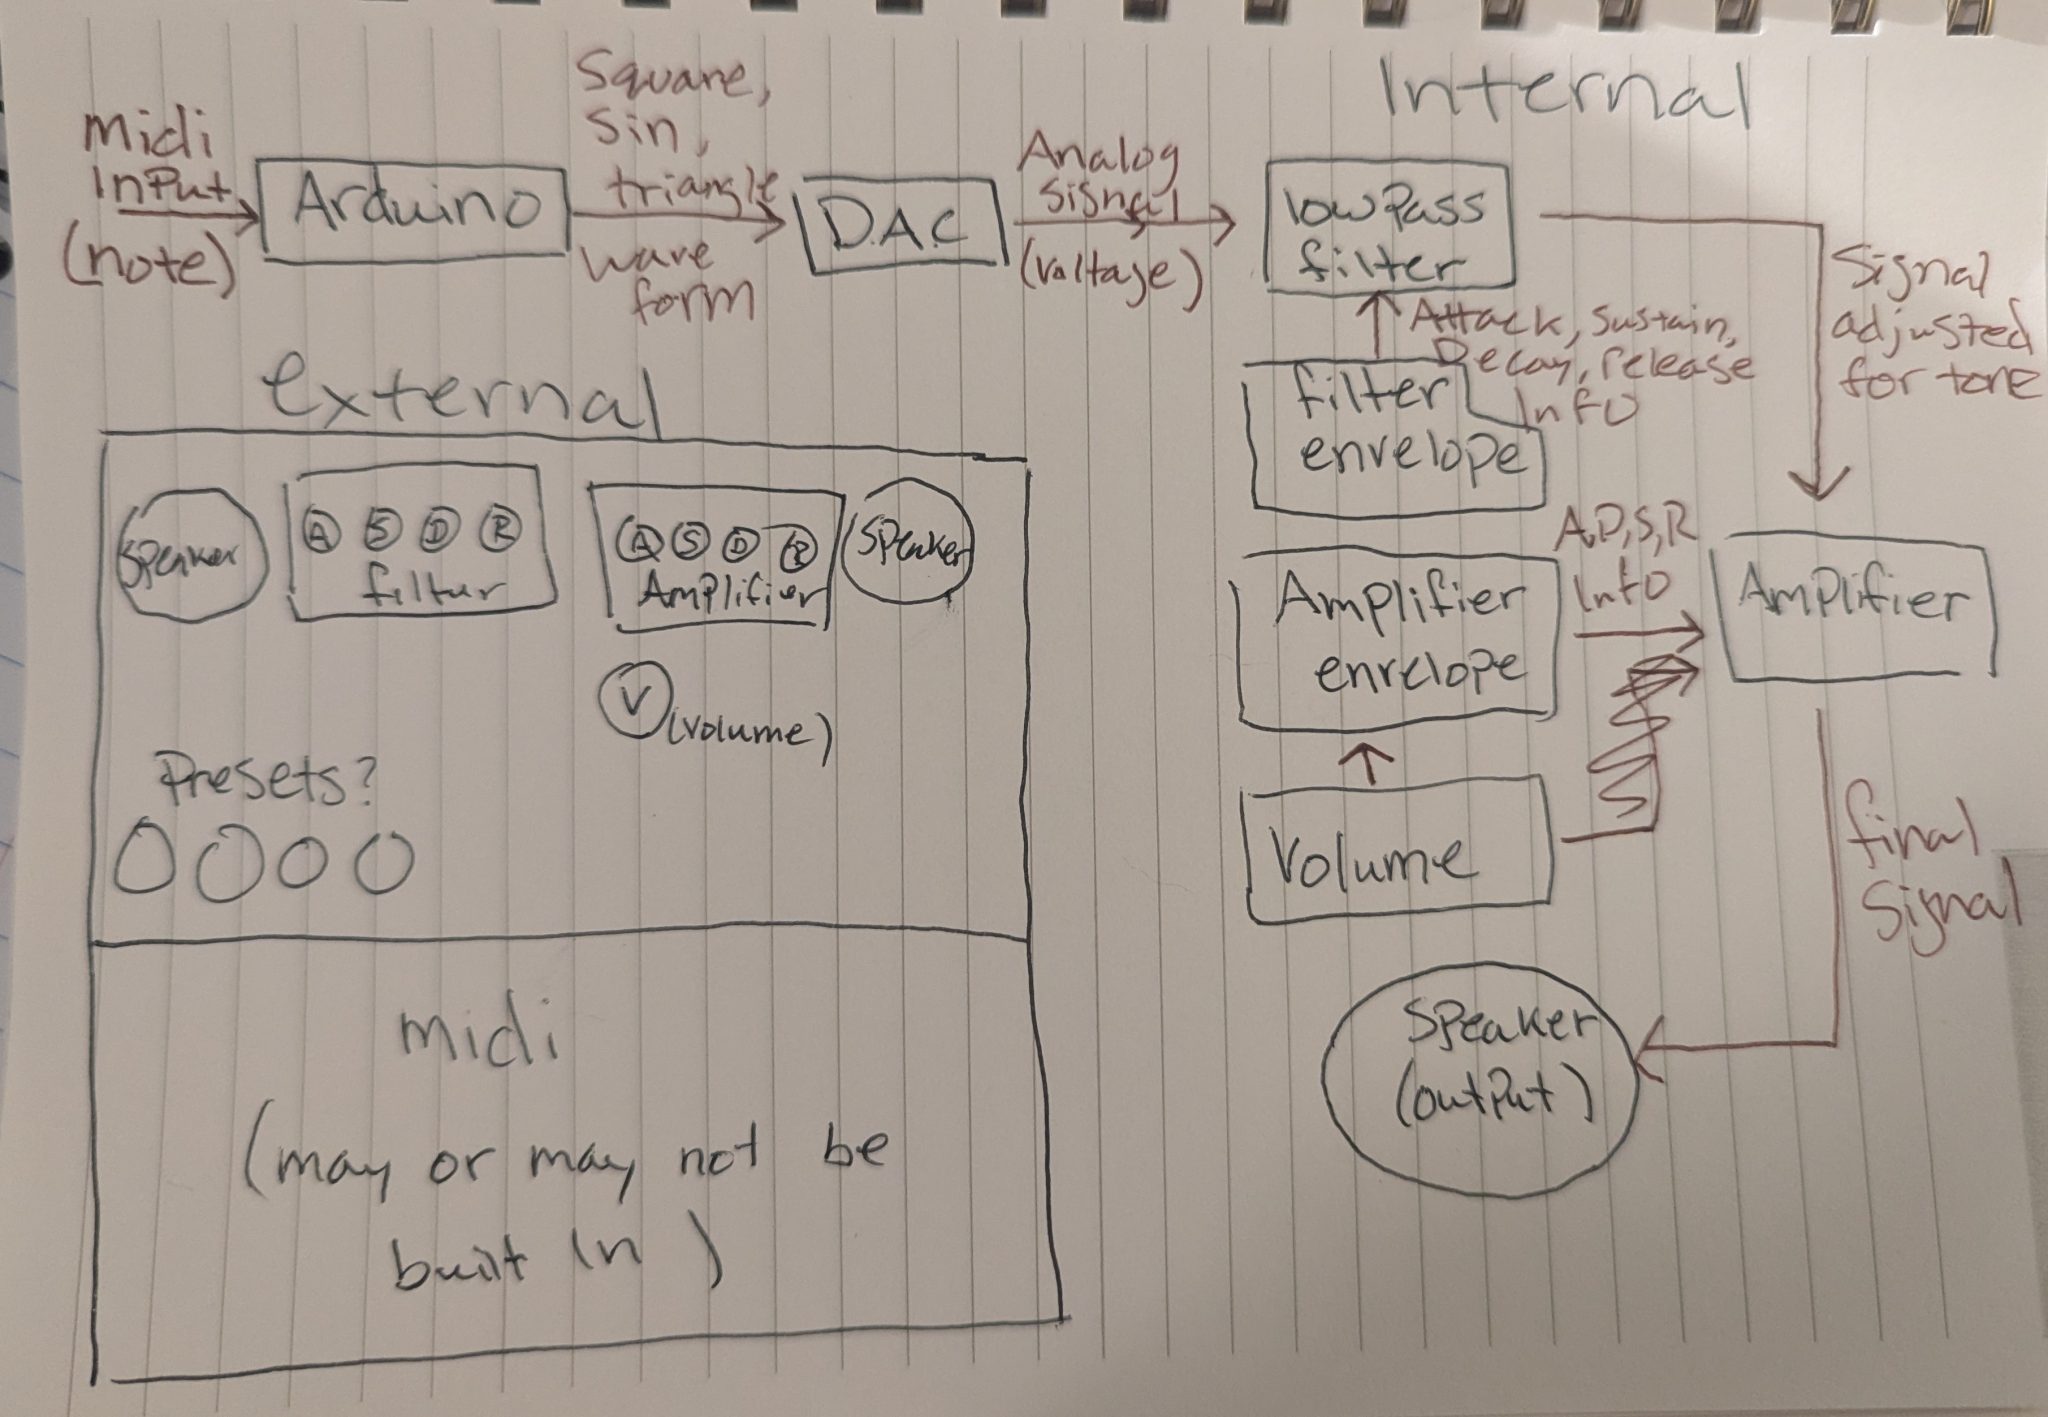 Internal
midi
InPut
(note)
Arduino
Square,
Sin,
triangle
wave
form
D.A.C
Analog
Signal
(voltage)
lowPass
filter
Signal
adjusted
for tone
Attack, Sustain,
Decay, release
Info
filter
envelope
A,D,S,R
Info
Amplifier
envelope
Amplifier
Volume
final
Signal
Speaker
(output)
external
Speaker
A S D R
filtur
A S D R
Amplifier
Speaker
V
(volume)
Presets?
midi
(may or may not be
built In)